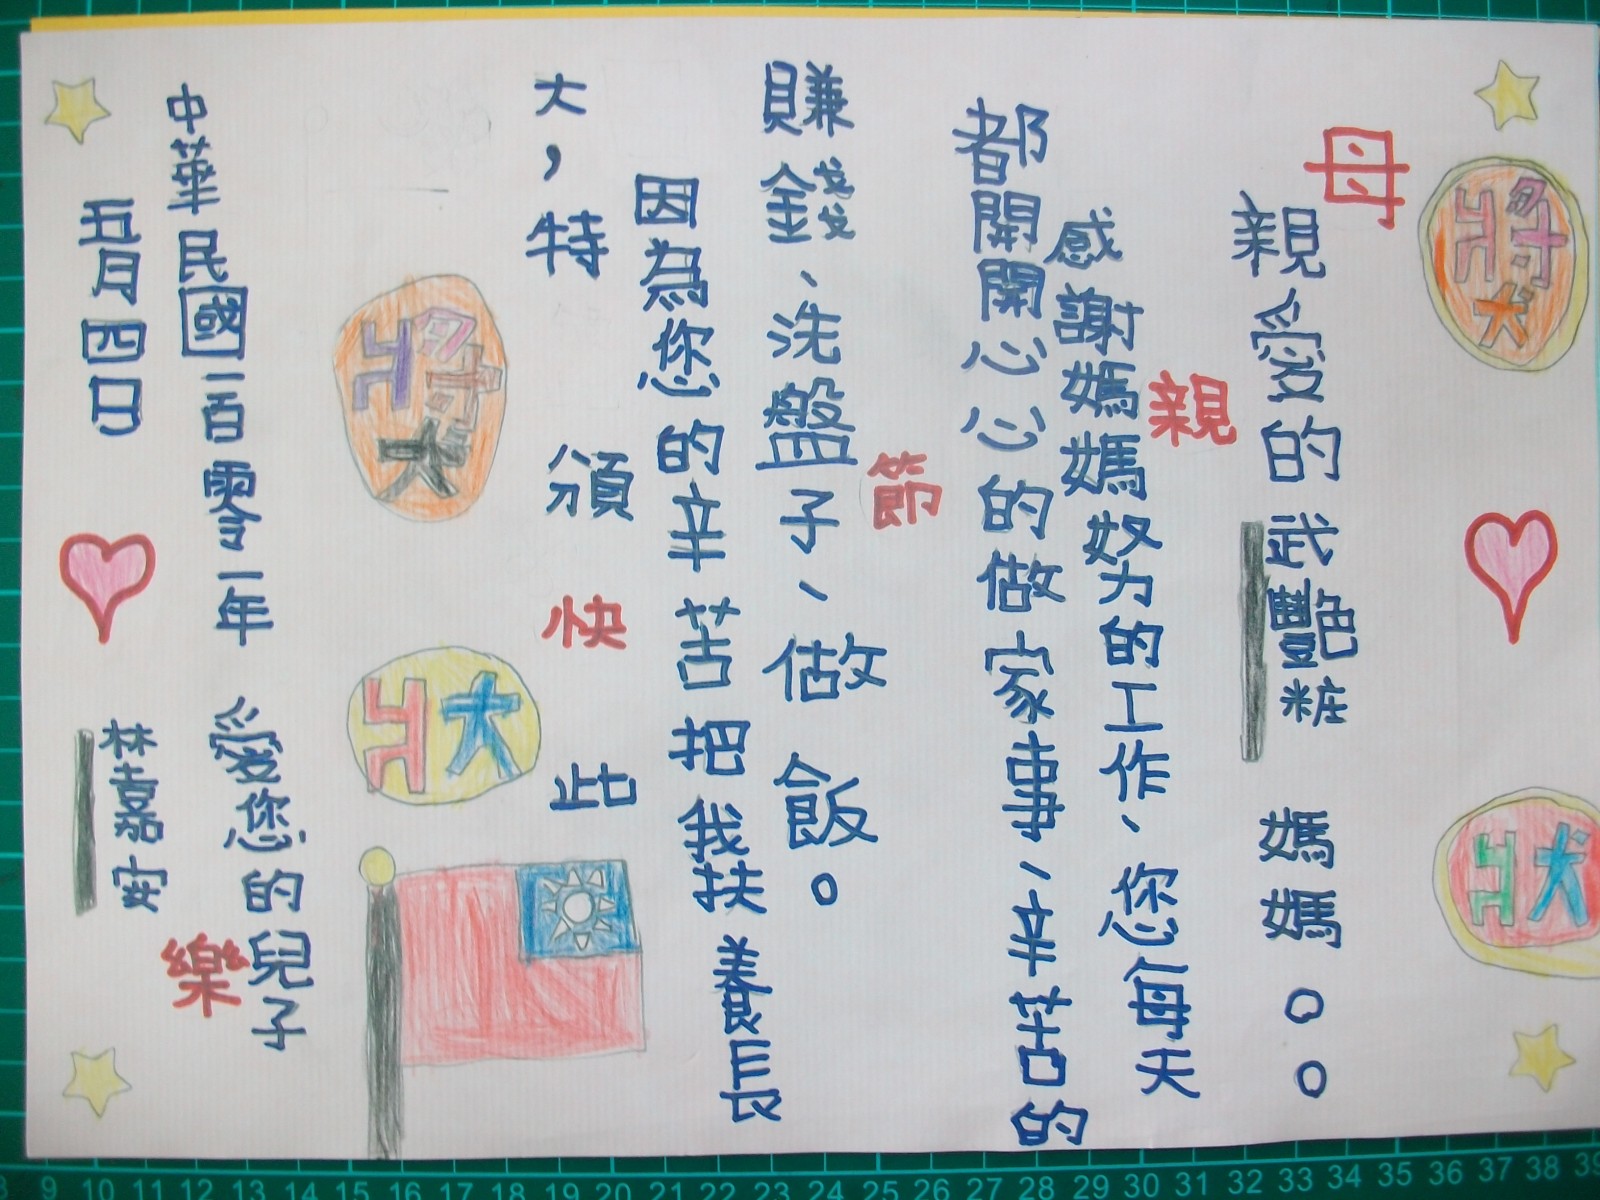 母親節快樂
親愛的武艷粧 媽媽。。
感謝媽媽努力的工作、您每天
都開開心心的做家事、辛苦的
賺錢、洗盤子、做飯。
因為您的辛苦把我扶養長
大，特 頒 此
獎
獎
狀
狀
中華民國一百零一年
五月四日
愛您的兒子
林嘉安
9 10 11 12 13 14 15 16 17 18 19 20 21 22 23 24 25 26 27 28 29 30 31 32 33 34 35 36 37 38 39